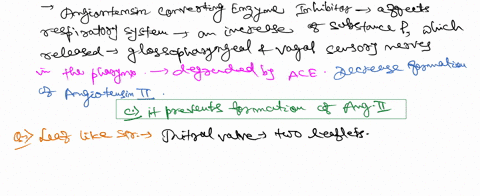 → Angiontensin converting Enzyme Inhibitor → affects
respiratory system → an increase of substance P, which
released → glossopharyngeal & vagal sensory nerves
in the pharynx → degraded by ACE. Decrease formation
of Angiotensin II.
c) It prevents formation of Ang. II
Q→ Leaf like str. → Mitral valve → two leaflets.